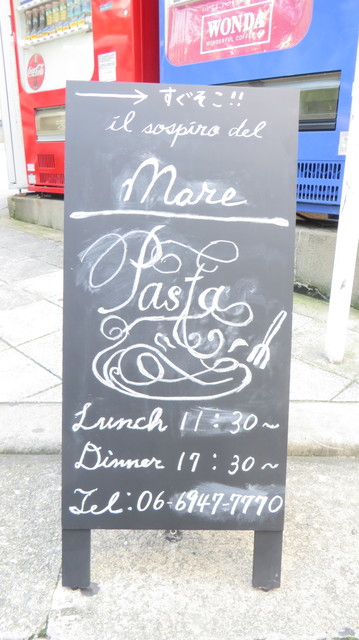 WONDA
WONDERFUL COFFEE
Coca-Cola
→ すぐそこ!!
il sospiro del
Mare
Pasta
Lunch 11:30~
Dinner 17:30~
Tel:06-6947-7770